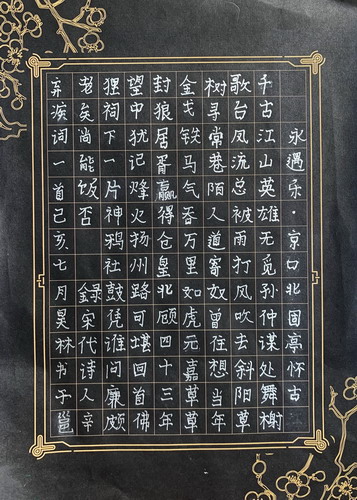 永遇乐·京口北固亭怀古
千古江山英雄无觅孙仲谋处舞榭
歌台风流总被雨打风吹去斜阳草
树寻常巷陌人道寄奴曾住想当年
金戈铁马气吞万里如虎元嘉草草
封狼居胥赢得仓皇北顾四十三年
望中犹记烽火扬州路可堪回首佛
狸祠下一片神鸦社鼓凭谁问廉颇
老矣尚能饭否 録宋代诗人辛
弃疾词一首己亥七月昊林书于邕